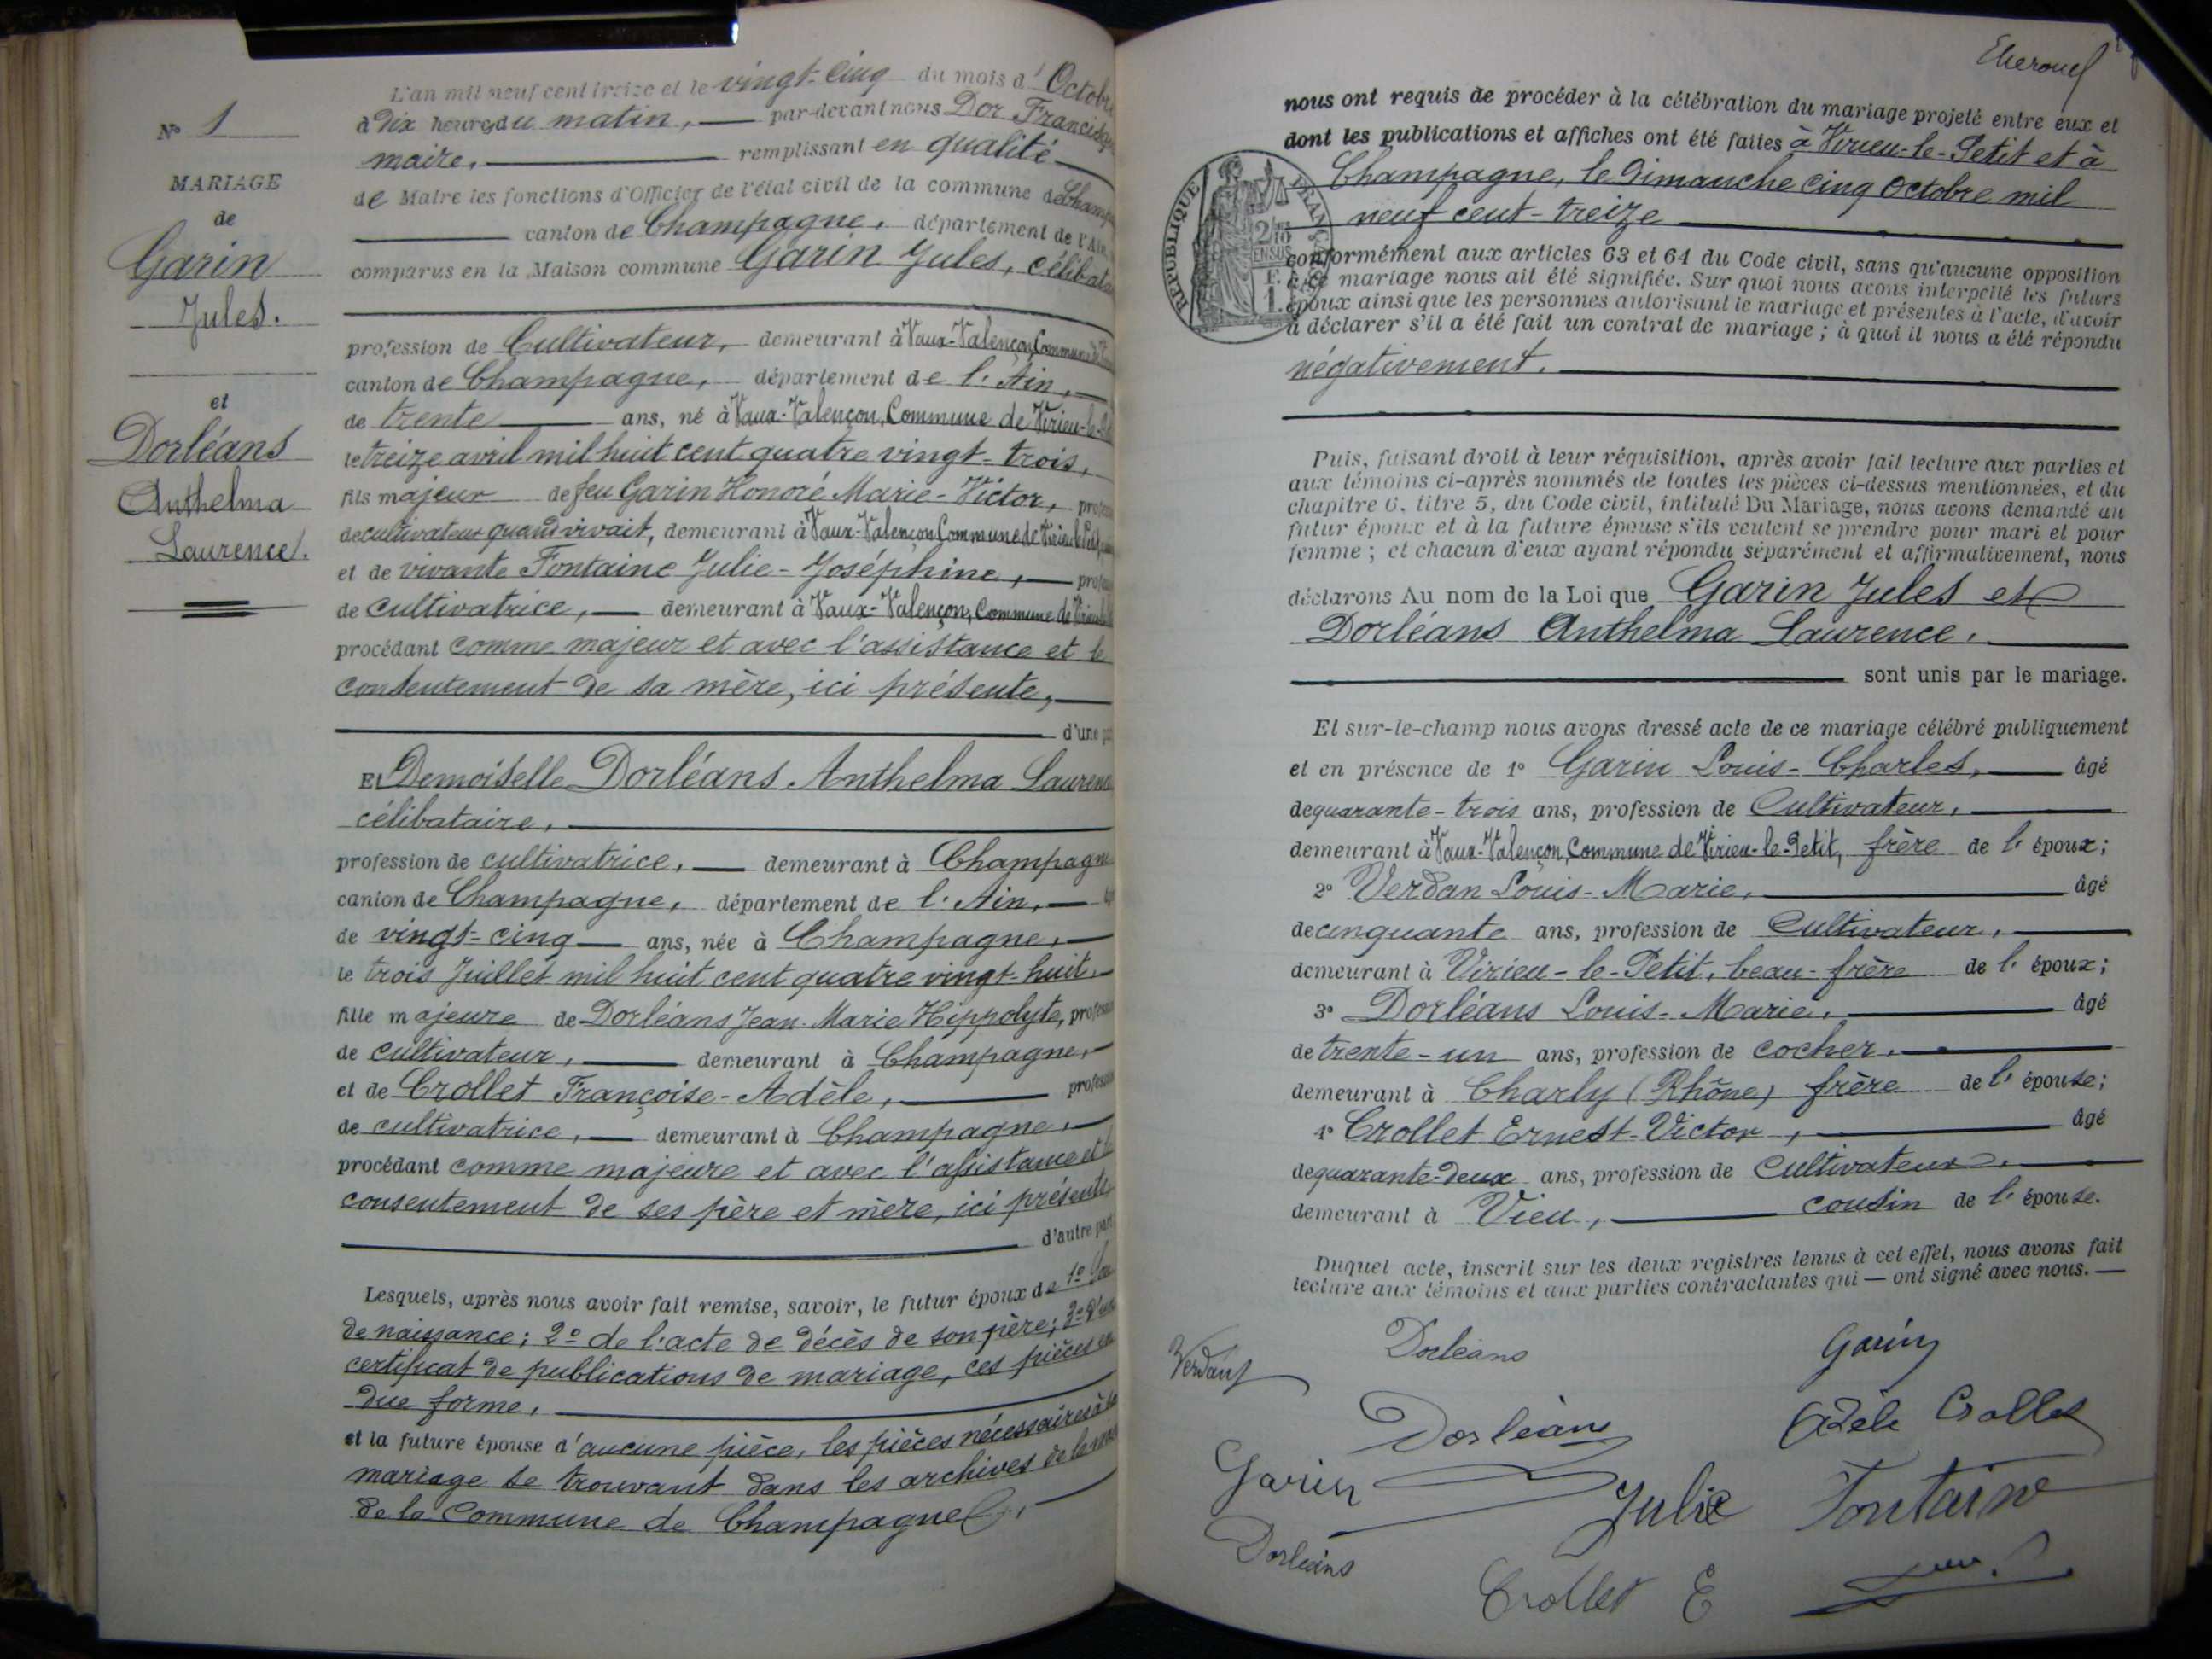 N° 1
MARIAGE
de
Garin
Jules.
et
Dorléans
Anthelma
Laurence.
L'an mil neuf cent treize et le vingt-cinq du mois d'Octobre
à dix heures du matin, par-devant nous Dor
maire, remplissant en qualité
de Maire les fonctions d'Officier de l'état civil de la commune de
canton de Champagne, département de l'Ain
comparus en la Maison commune Garin Jules,
profession de Cultivateur, demeurant à Vaux-Valençon, Commune de
canton de Champagne, département de l'Ain,
de trente ans, né à Vaux-Valençon, Commune de Virieu-le-
le treize avril mil huit cent quatre vingt-trois,
fils majeur de feu Garin Honoré Marie-Victor,
de cultivateur quand vivait, demeurant à Vaux-Valençon Commune de
et de vivante Fontaine Julie-Joséphine,
de cultivatrice, demeurant à Vaux-Valençon, Commune de
procédant comme majeur et avec l'assistance et le
consentement de sa mère, ici présente,
d'une
Et Demoiselle Dorléans Anthelma Laurence
célibataire,
profession de cultivatrice, demeurant à Champagne
canton de Champagne, département de l'Ain,
de vingt-cinq ans, née à Champagne,
le trois Juillet mil huit cent quatre vingt-huit,
fille majeure de Dorléans Jean-Marie Hippolyte, profession
de cultivateur, demeurant à Champagne,
et de Crollet Françoise-Adèle, profession
de cultivatrice, demeurant à Champagne,
procédant comme majeure et avec l'assistance et
consentement de ses père et mère, ici présents
d'autre part
Lesquels, après nous avoir fait remise, savoir, le futur époux de 1°
de naissance; 2° de l'acte de décès de son père; 3° d'un
certificat de publications de mariage, ces pièces en
due forme,
et la future épouse d'aucune pièce, les pièces nécessaires à
mariage se trouvant dans les archives de la
de la Commune de Champagne.
nous ont requis de procéder à la célébration du mariage projeté entre eux et
dont les publications et affiches ont été faites à Virieu-le-Petit et à
Champagne, le Dimanche cinq Octobre mil
neuf cent-treize
RÉPUBLIQUE FRANÇAISE
2/10 EN SUS
1 F.
conformément aux articles 63 et 64 du Code civil, sans qu'aucune opposition
à ce mariage nous ait été signifiée. Sur quoi nous avons interpellé les futurs
époux ainsi que les personnes autorisant le mariage et présentes à l'acte, d'avoir
à déclarer s'il a été fait un contrat de mariage ; à quoi il nous a été répondu
négativement.
Puis, faisant droit à leur réquisition, après avoir fait lecture aux parties et
aux témoins ci-après nommés de toutes les pièces ci-dessus mentionnées, et du
chapitre 6, titre 5, du Code civil, intitulé Du Mariage, nous avons demandé au
futur époux et à la future épouse s'ils veulent se prendre pour mari et pour
femme ; et chacun d'eux ayant répondu séparément et affirmativement, nous
déclarons Au nom de la Loi que Garin Jules et
Dorléans Anthelma Laurence,
sont unis par le mariage.
Et sur-le-champ nous avons dressé acte de ce mariage célébré publiquement
et en présence de 1° Garin Louis-Charles, âgé
de quarante-trois ans, profession de Cultivateur,
demeurant à Vaux-Valençon, Commune de Virieu-le-Petit, frère de l'époux;
2° Verdan Louis-Marie, âgé
de cinquante ans, profession de Cultivateur,
demeurant à Virieu-le-Petit, beau-frère de l'époux;
3° Dorléans Louis-Marie, âgé
de trente-un ans, profession de cocher,
demeurant à Charly (Rhône) frère de l'épouse;
4° Crollet Ernest-Victor, âgé
de quarante-deux ans, profession de Cultivateur,
demeurant à Vieu, cousin de l'épouse.
Duquel acte, inscrit sur les deux registres tenus à cet effet, nous avons fait
lecture aux témoins et aux parties contractantes qui — ont signé avec nous. —
Verdan
Dorléans
Garin
Dorléans
Adèle Crollet
Garin
Julie Fontaine
Dorléans
Crollet E